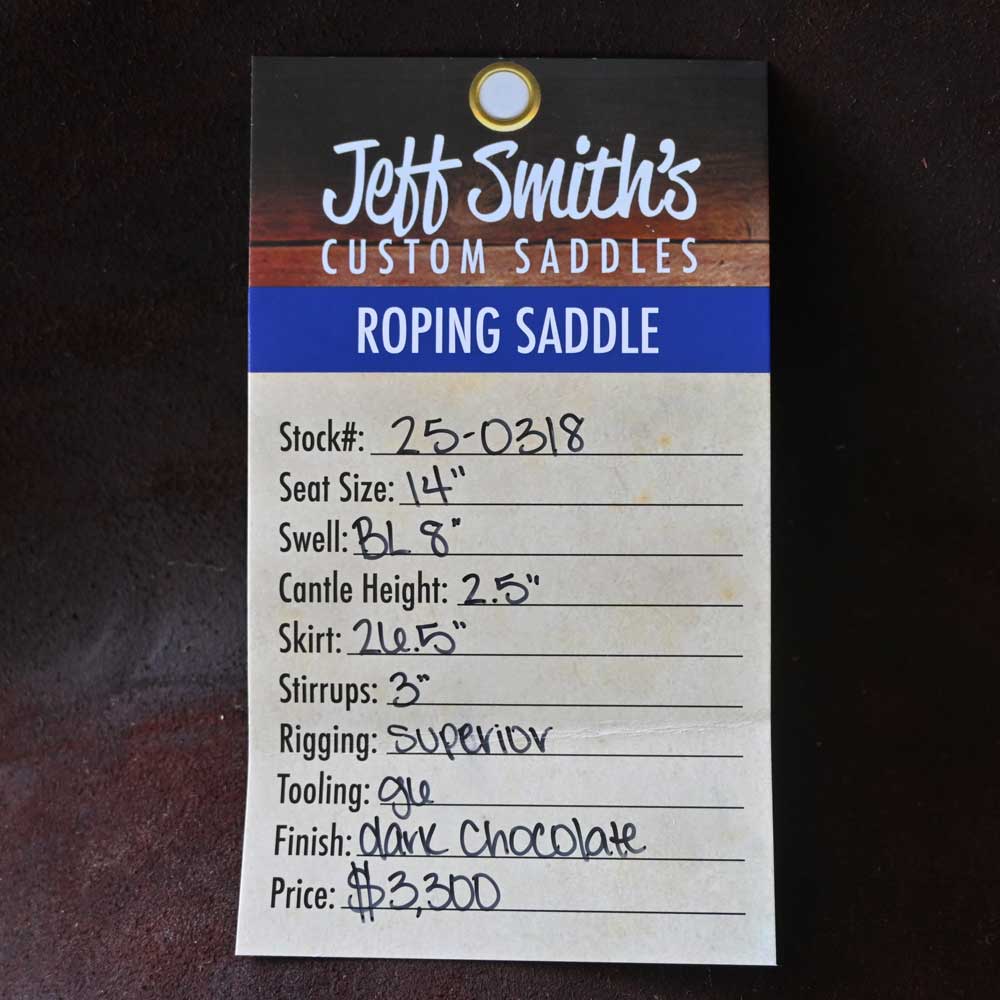 Jeff Smith's
CUSTOM SADDLES
ROPING SADDLE
Stock#: 25-0318
Seat Size: 14"
Swell: BL 8"
Cantle Height: 2.5"
Skirt: 26.5"
Stirrups: 3"
Rigging: superior
Tooling:
Finish: dark chocolate
Price: $3,300